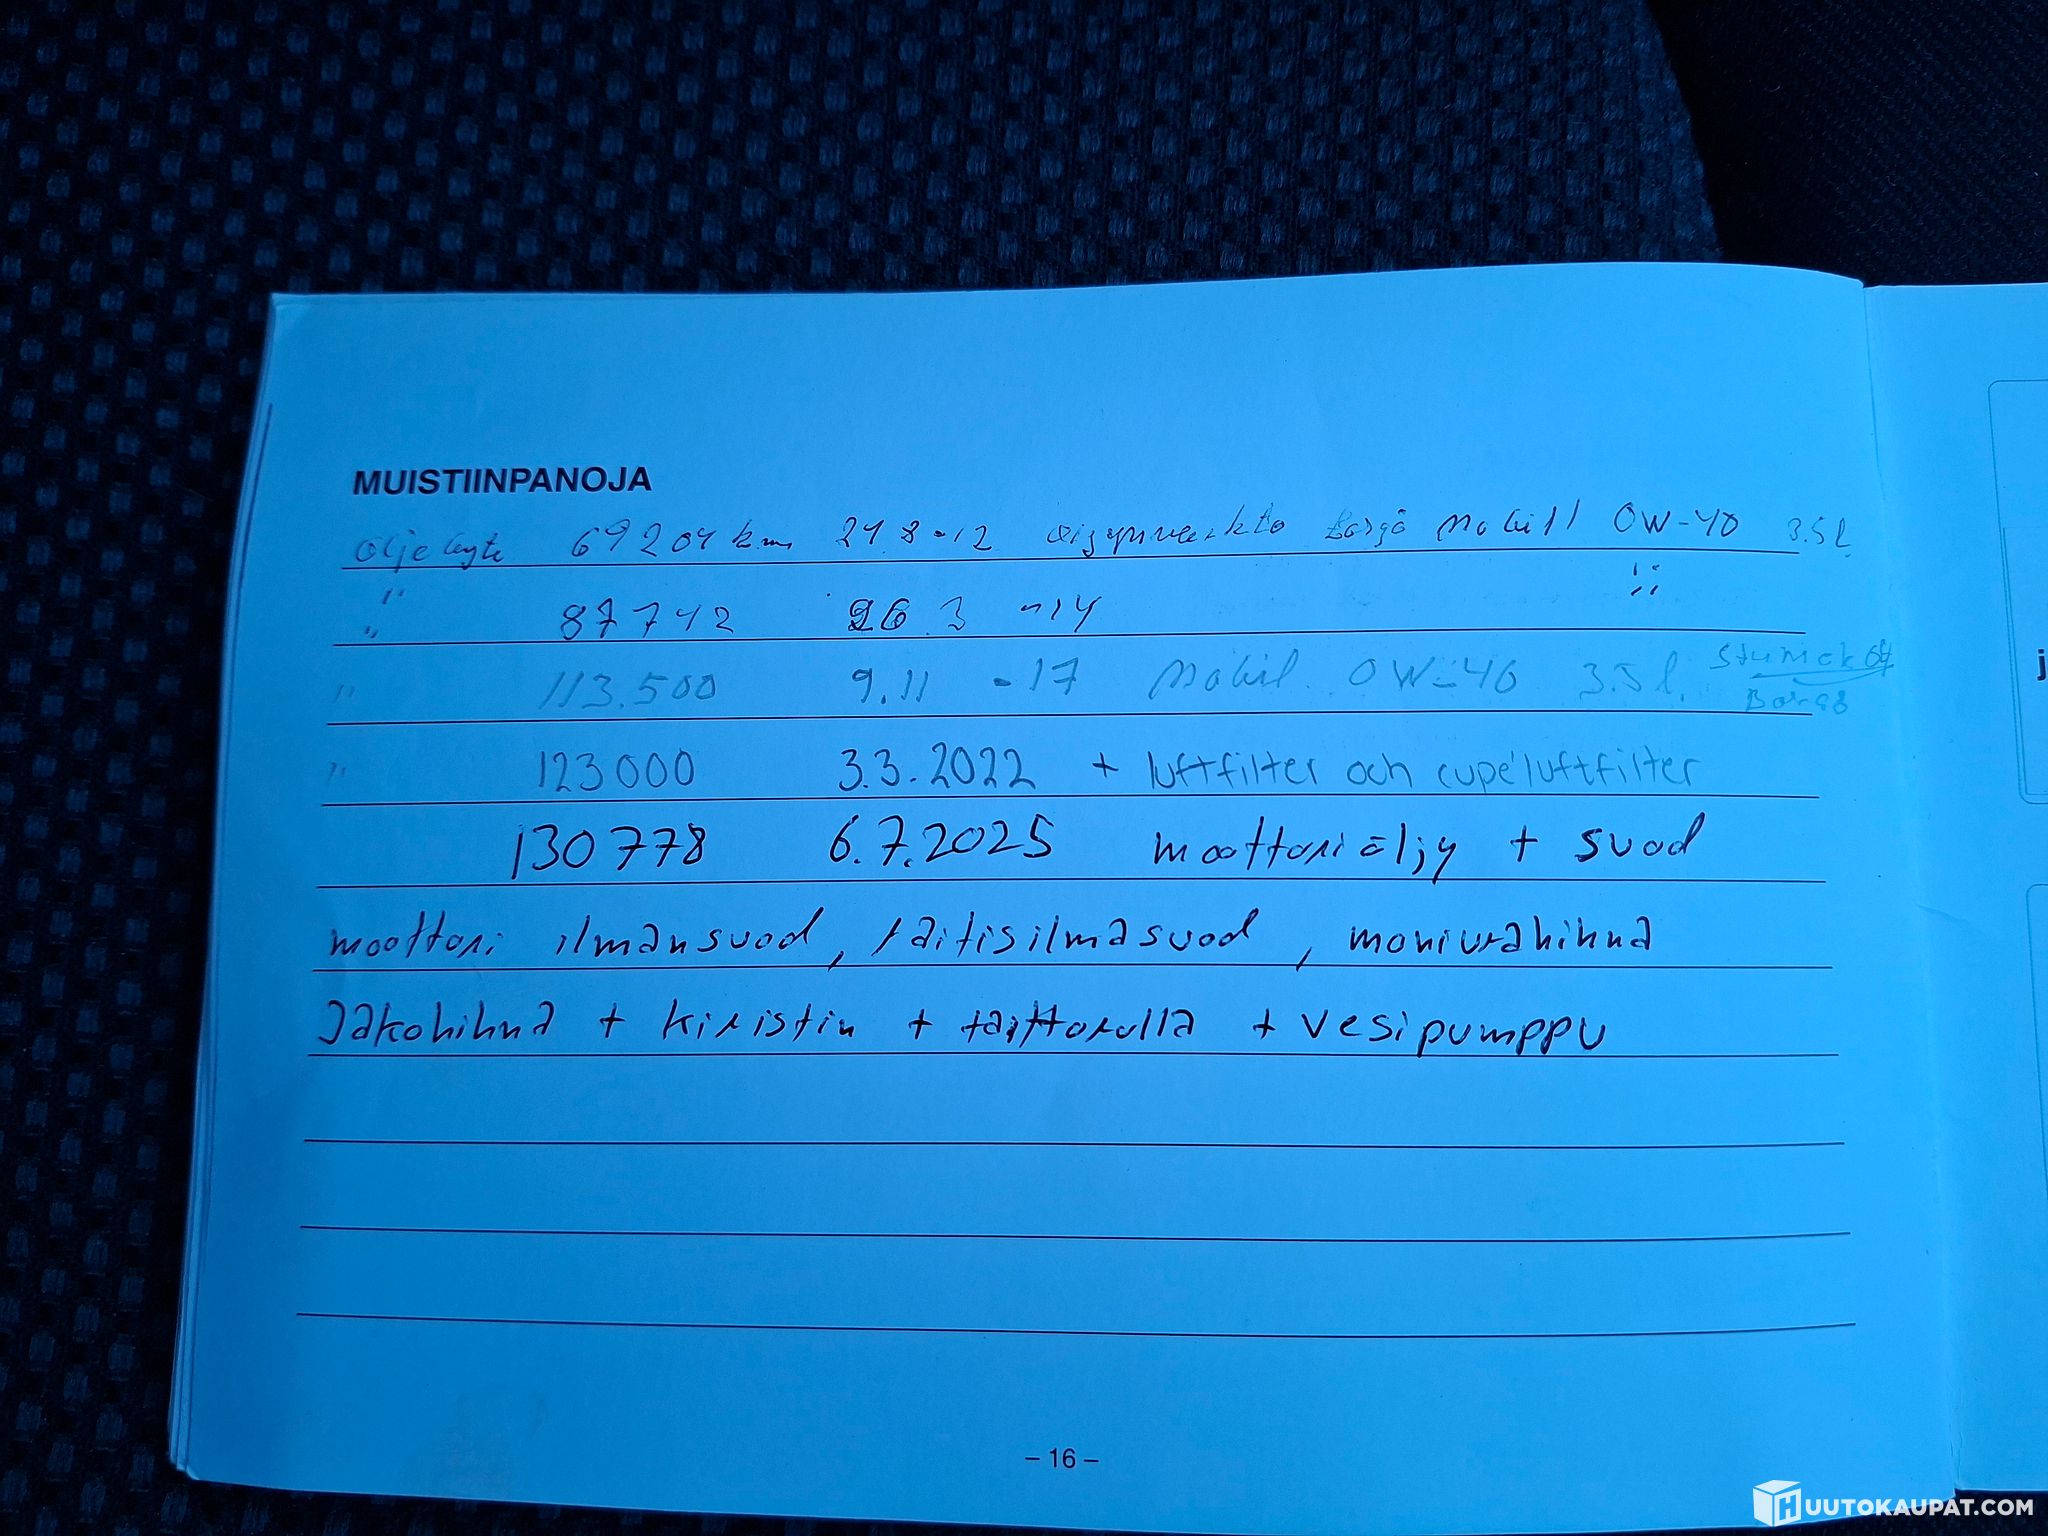 MUISTIINPANOJA
olje byte 69204 km 8-12 Mobil 1 0W-40 3.5 l
" 87742 26.3 -14 "
" 113.500 9.11 -17 Mobil 0W-40 3.5 l.
" 123000 3.3.2022 + luftfilter och cupéluftfilter
130778 6.7.2025 moottoriöljy + suod
moottori ilmansuod, raitisilmasuod, moniurahihna
Jakohihna + kiristin + taittorulla + vesipumppu
– 16 –
HUUTOKAUPAT.COM